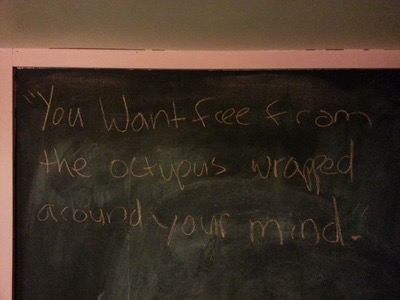 "You Want free from
the octupus wrapped
around your mind.